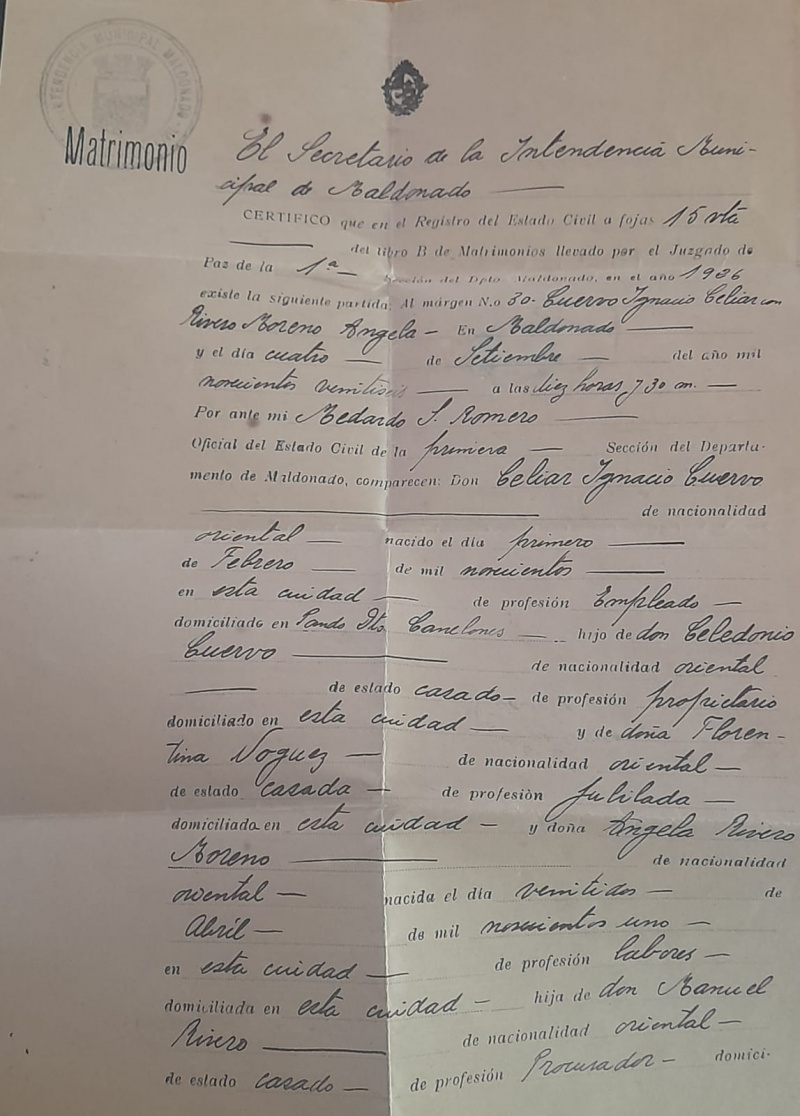 INTENDENCIA MUNICIPAL MALDONADO
Matrimonio
El Secretario de la Intendencia Muni-
cipal de Maldonado —
CERTIFICO que en el Registro del Estado Civil a fojas 15 vta
— del libro B de Matrimonios llevado por el Juzgado de
Paz de la 1ª — Sección del Dpto. Maldonado, en el año 1926
existe la siguiente partida: Al márgen N.o 30- Cuervo Ignacio Celiar con
Rivero Moreno Angela — En Maldonado —
y el día cuatro — de Setiembre — del año mil
novecientos veintiseis — a las diez horas y 30 m. —
Por ante mi Medardo S. Romero —
Oficial del Estado Civil de la primera — Sección del Departa-
mento de Maldonado, comparecen: Don Celiar Ignacio Cuervo
— de nacionalidad
oriental — nacido el día primero —
de Febrero — de mil novecientos —
en esta ciudad — de profesión Empleado —
domiciliado en Pando Dto Canelones — hijo de don Celedonio
Cuervo — de nacionalidad oriental
— de estado casado — de profesión propietario
domiciliado en esta ciudad — y de doña Floren-
tina Noguez — de nacionalidad oriental —
de estado casada — de profesiòn Jubilada —
domiciliado en esta ciudad — y doña Ángela Rivero
Moreno — de nacionalidad
oriental — nacida el día veintidos — de
Abríl — de mil novecientos uno —
en esta ciudad — de profesión labores —
domiciliada en esta ciudad — hija de don Manuel
Rivero — de nacionalidad oriental —
de estado casado — de profesión Procurador — domici-